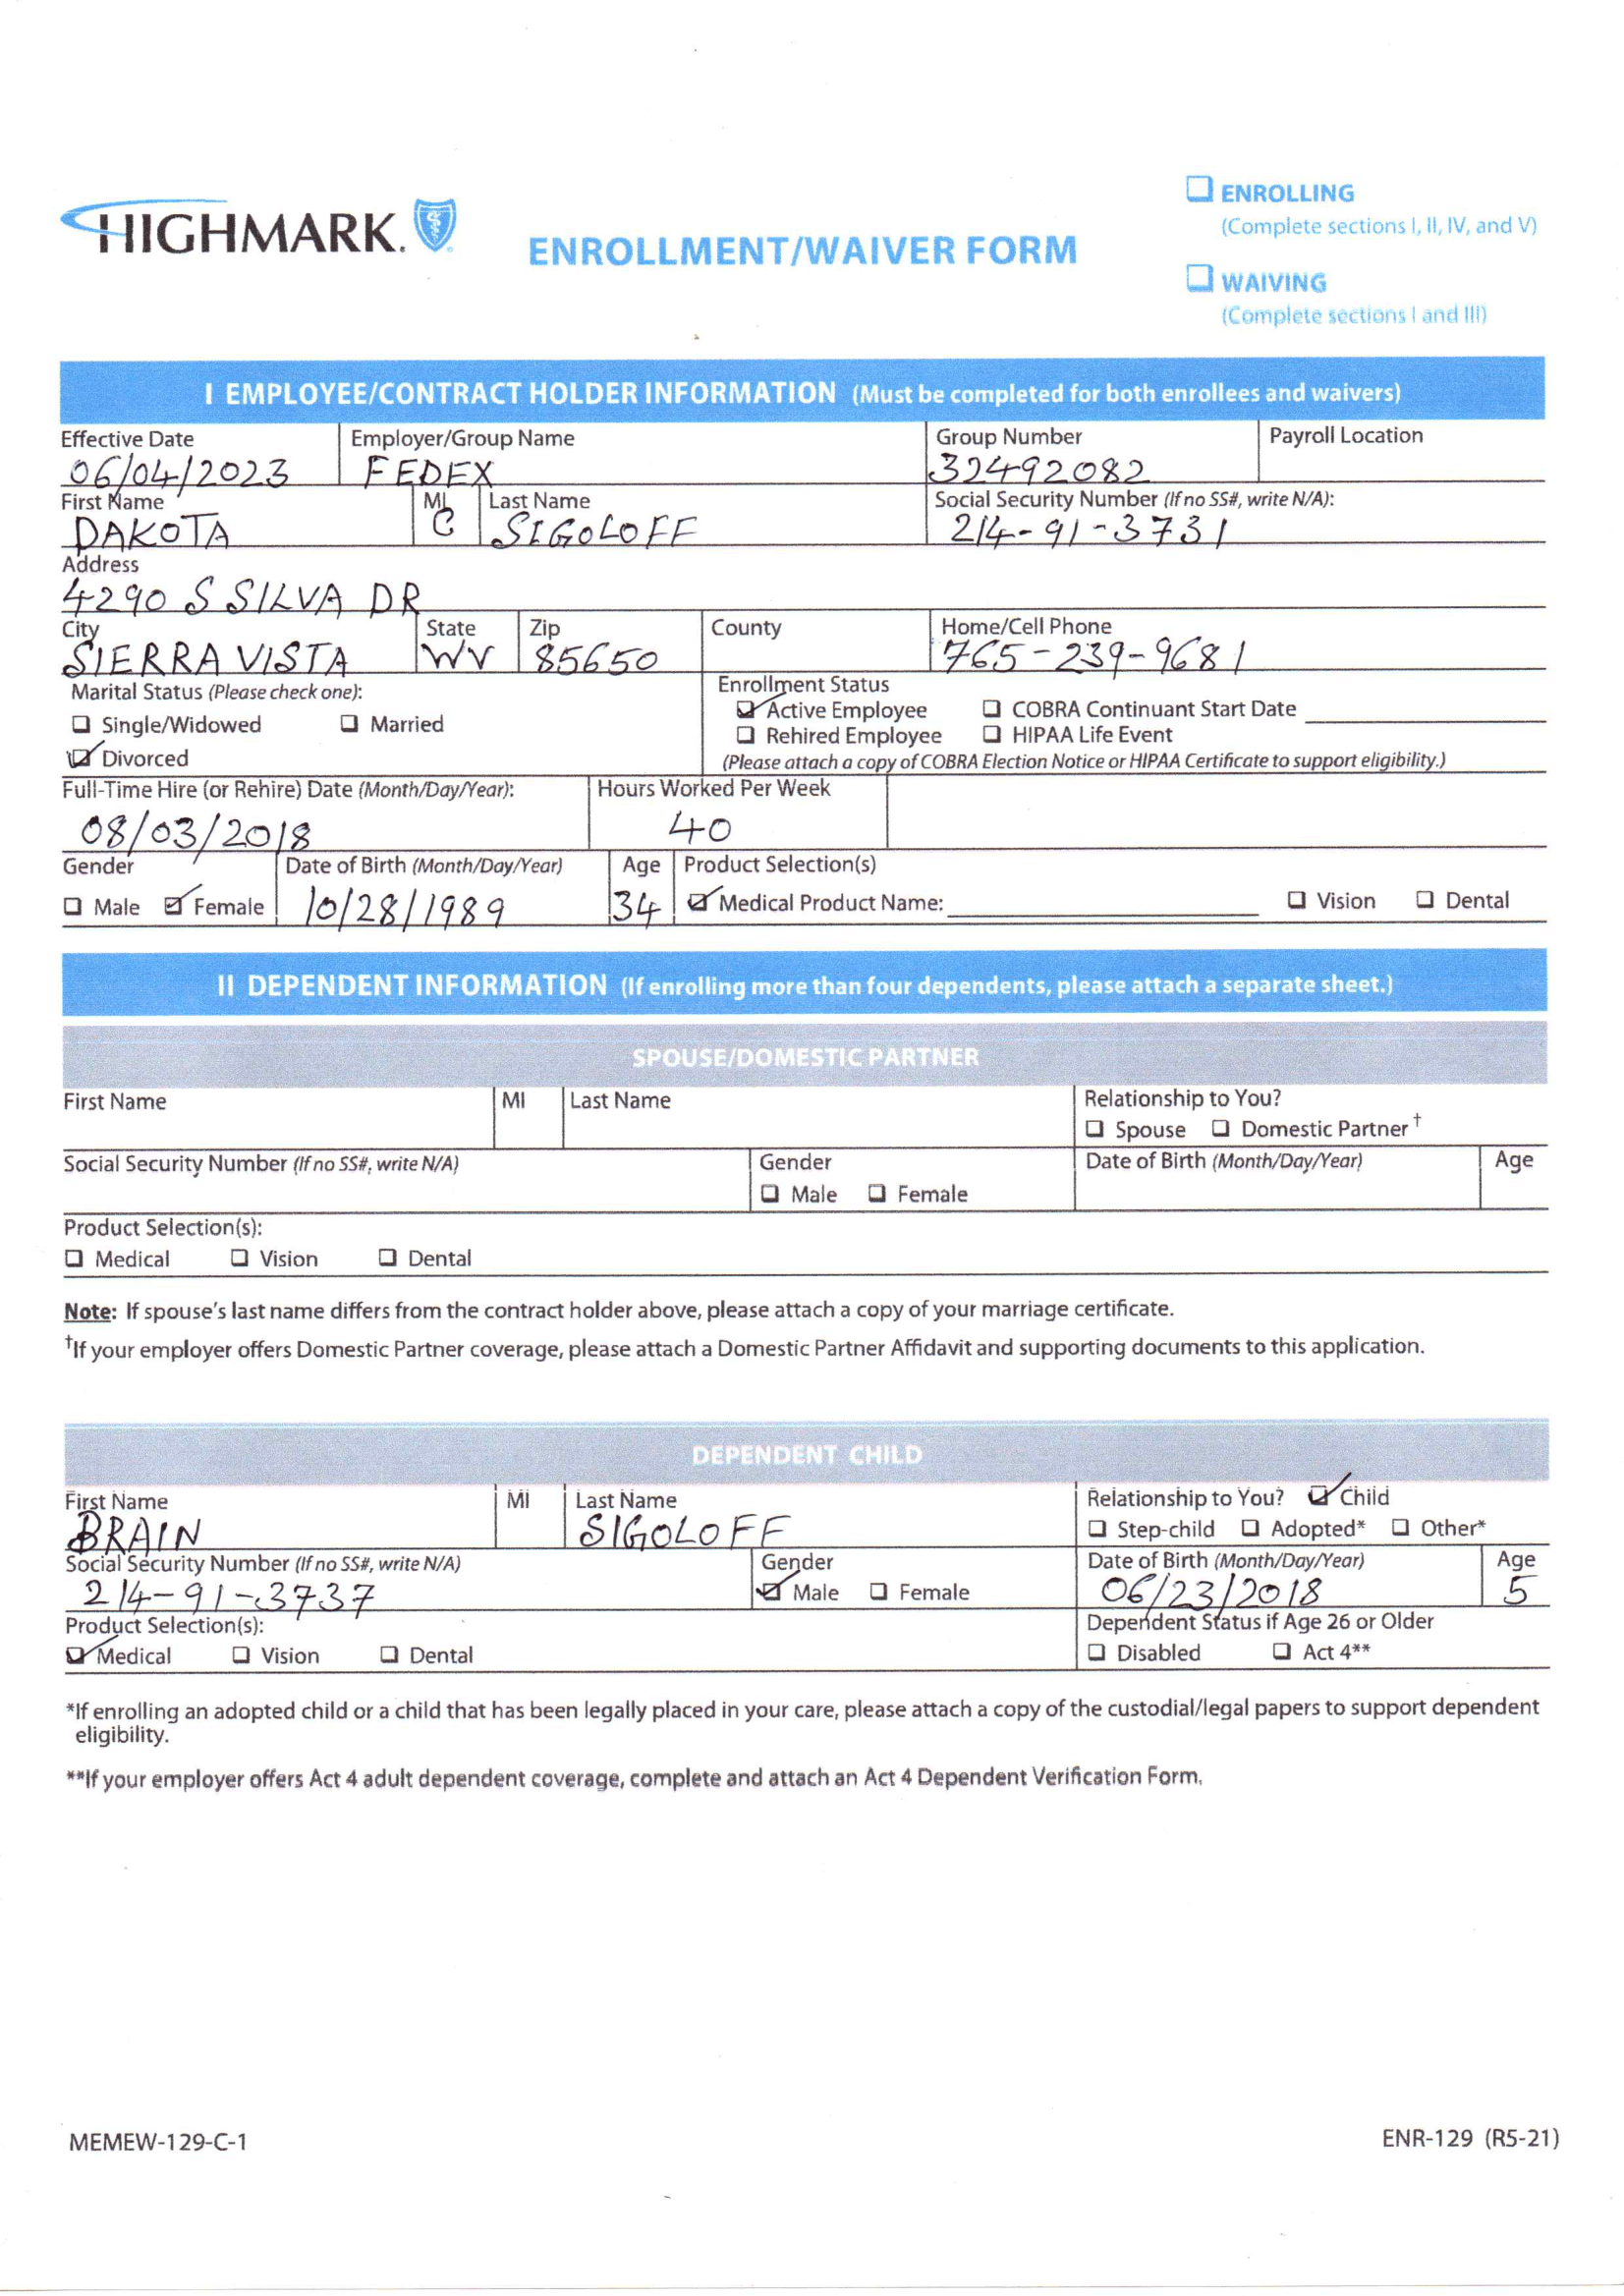 HIGHMARK.
ENROLLMENT/WAIVER FORM
❑ ENROLLING
(Complete sections I, II, IV, and V)
❑ WAIVING
(Complete sections I and III)
I EMPLOYEE/CONTRACT HOLDER INFORMATION (Must be completed for both enrollees and waivers)
Effective Date Employer/Group Name Group Number Payroll Location
06/04/2023 FEDEX 32492082
First Name MI Last Name Social Security Number (If no SS#, write N/A):
DAKOTA C SIGOLOFF 214-91-3731
Address
4290 S SILVA DR
City State Zip County Home/Cell Phone
SIERRA VISTA WV 85650 765-239-9681
Marital Status (Please check one): Enrollment Status
❑ Single/Widowed ❑ Married ☑ Active Employee ❑ COBRA Continuant Start Date
☑ Divorced ❑ Rehired Employee ❑ HIPAA Life Event
(Please attach a copy of COBRA Election Notice or HIPAA Certificate to support eligibility.)
Full-Time Hire (or Rehire) Date (Month/Day/Year): Hours Worked Per Week
08/03/2018 40
Gender Date of Birth (Month/Day/Year) Age Product Selection(s)
❑ Male ☑ Female 10/28/1989 34 ☑ Medical Product Name: ❑ Vision ❑ Dental
II DEPENDENT INFORMATION (If enrolling more than four dependents, please attach a separate sheet.)
SPOUSE/DOMESTIC PARTNER
First Name MI Last Name Relationship to You?
❑ Spouse ❑ Domestic Partner†
Social Security Number (If no SS#, write N/A) Gender Date of Birth (Month/Day/Year) Age
❑ Male ❑ Female
Product Selection(s):
❑ Medical ❑ Vision ❑ Dental
Note: If spouse's last name differs from the contract holder above, please attach a copy of your marriage certificate.
†If your employer offers Domestic Partner coverage, please attach a Domestic Partner Affidavit and supporting documents to this application.
DEPENDENT CHILD
First Name MI Last Name Relationship to You? ☑ Child
BRAIN SIGOLOFF ❑ Step-child ❑ Adopted* ❑ Other*
Social Security Number (If no SS#, write N/A) Gender Date of Birth (Month/Day/Year) Age
214-91-3737 ☑ Male ❑ Female 06/23/2018 5
Product Selection(s): Dependent Status if Age 26 or Older
☑ Medical ❑ Vision ❑ Dental ❑ Disabled ❑ Act 4**
*If enrolling an adopted child or a child that has been legally placed in your care, please attach a copy of the custodial/legal papers to support dependent
eligibility.
**If your employer offers Act 4 adult dependent coverage, complete and attach an Act 4 Dependent Verification Form.
MEMEW-129-C-1 ENR-129 (R5-21)